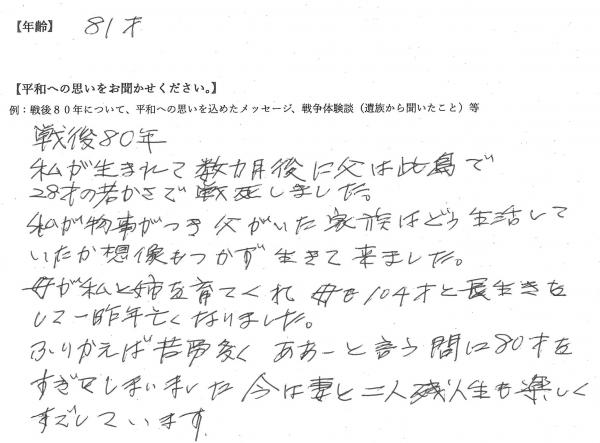 【年齢】 81才
【平和への思いをお聞かせください。】
例：戦後８０年について、平和への思いを込めたメッセージ、戦争体験談（遺族から聞いたこと）等
戦後80年
私が生まれて数カ月後に父は比島で
28才の若かさで戦死しました。
私が物事がつき父がいた家族はどう生活して
いたか想像もつかず生きて来ました。
母が私と姉を育てくれ母も104才と長生きを
して一昨年亡くなりました。
ふりかえば苦労多くああーと言う間に80才を
すぎてしまいました今は妻と二人残人生も楽しく
すごしています